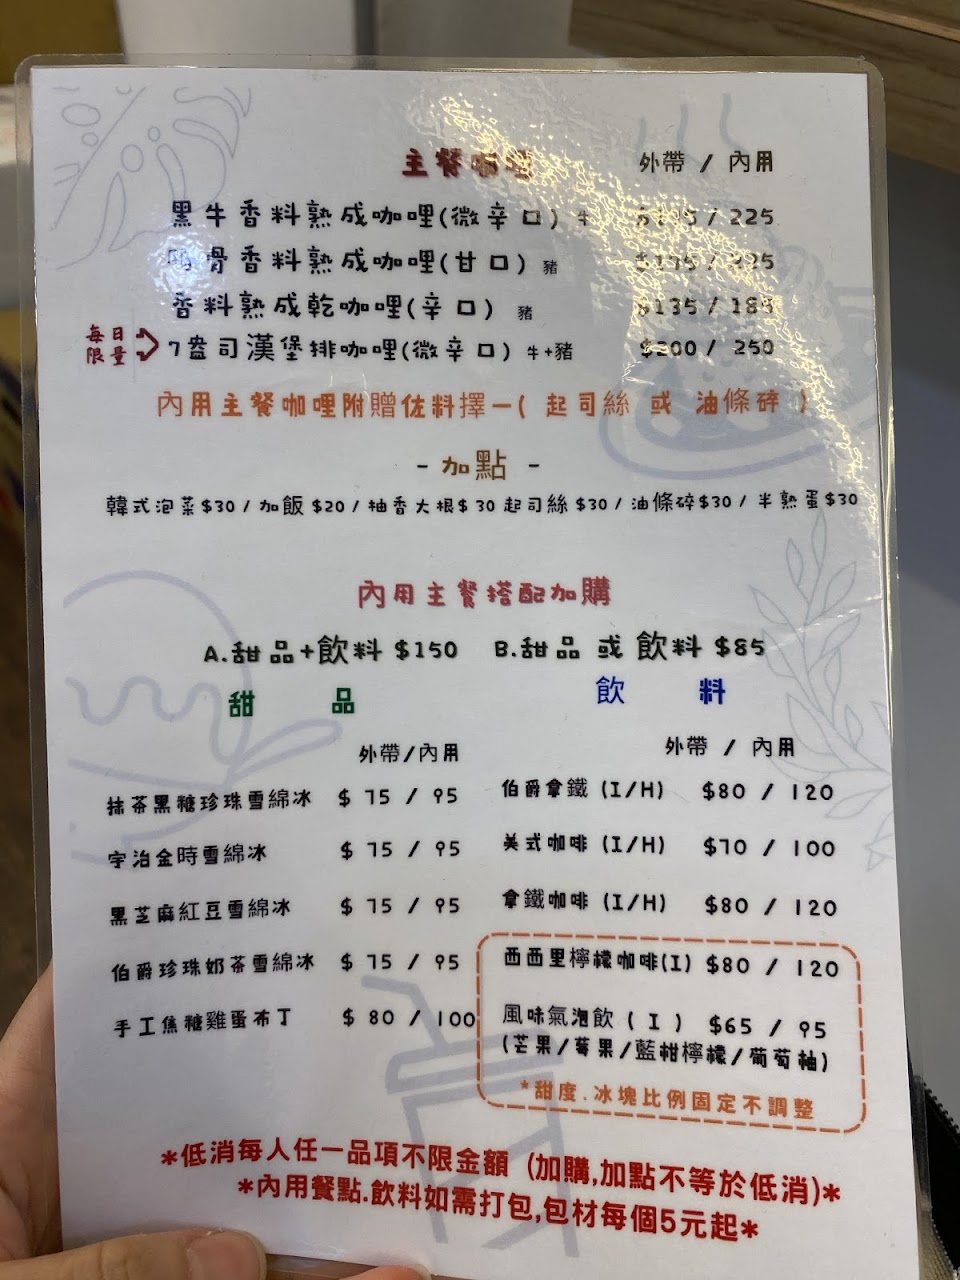 主餐咖哩 外帶 / 內用
黑牛香料熟成咖哩(微辛口) 牛 / 225
骨香料熟成咖哩(甘口) 豬
香料熟成乾咖哩(辛口) 豬 $135 /
每日
限量
7盎司漢堡排咖哩(微辛口) 牛+豬 $200 / 250
內用主餐咖哩附贈佐料擇一( 起司絲 或 油條碎 )
- 加點 -
韓式泡菜$30 / 加飯 $20 / 柚香大根$ 30 起司絲 $30 / 油條碎$30 / 半熟蛋$30
內用主餐搭配加購
A.甜品+飲料 $150 B.甜品 或 飲料 $85
甜 品
外帶/內用
抹茶黑糖珍珠雪綿冰 $ 75 / 95
宇治金時雪綿冰 $ 75 / 95
黑芝麻紅豆雪綿冰 $ 75 / 95
伯爵珍珠奶茶雪綿冰 $ 75 / 95
手工焦糖雞蛋布丁 $ 80 / 100
飲 料
外帶 / 內用
伯爵拿鐵 (I/H) $80 / 120
美式咖啡 (I/H) $70 / 100
拿鐵咖啡 (I/H) $80 / 120
西西里檸檬咖啡(I) $80 / 120
風味氣泡飲 ( I ) $65 / 95
(芒果/莓果/藍柑檸檬/葡萄柚)
*甜度.冰塊比例固定不調整
*低消每人任一品項不限金額 (加購,加點不等於低消)*
*內用餐點.飲料如需打包,包材每個5元起*